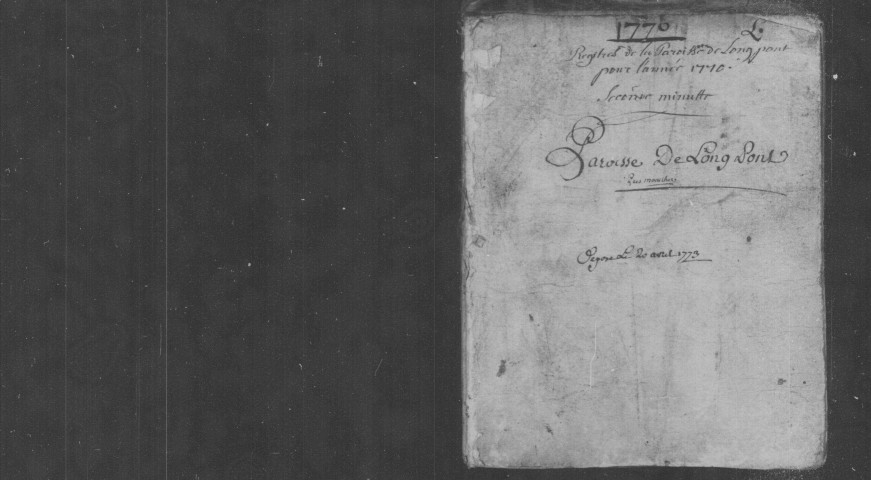 1770 L
Registre de la Paroisse de Long pont
pour l'année 1770.
Seconde minutte
Paroisse De Long Pont
Deposé Le 20 avril 1773